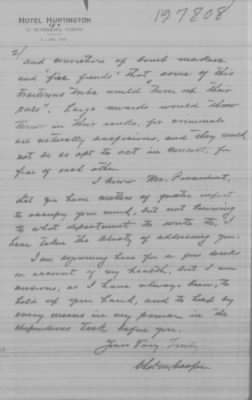 HOTEL HUNTINGTON
ST. PETERSBURG, FLORIDA
197808
2/
and execution of bomb makers
and "fire fiends" that some of this
traitorous tribe would "turn up their
pals". Large rewards would "throw
terror in their ranks, for criminals
are naturally suspicious, and they would
not be so apt to act in concert, for
fear of each other
I know Mr. President,
that you have matters of greater import
to occupy your mind, but not knowing
to what department to write to, I
have taken the liberty of addressing you.
I am sojourning here for a few weeks
on account of my health, but I am
anxious, as I have always been, to
hold up your hand, and to help by
every means in my power in the
stupendous task before you.
Yours Very Truly